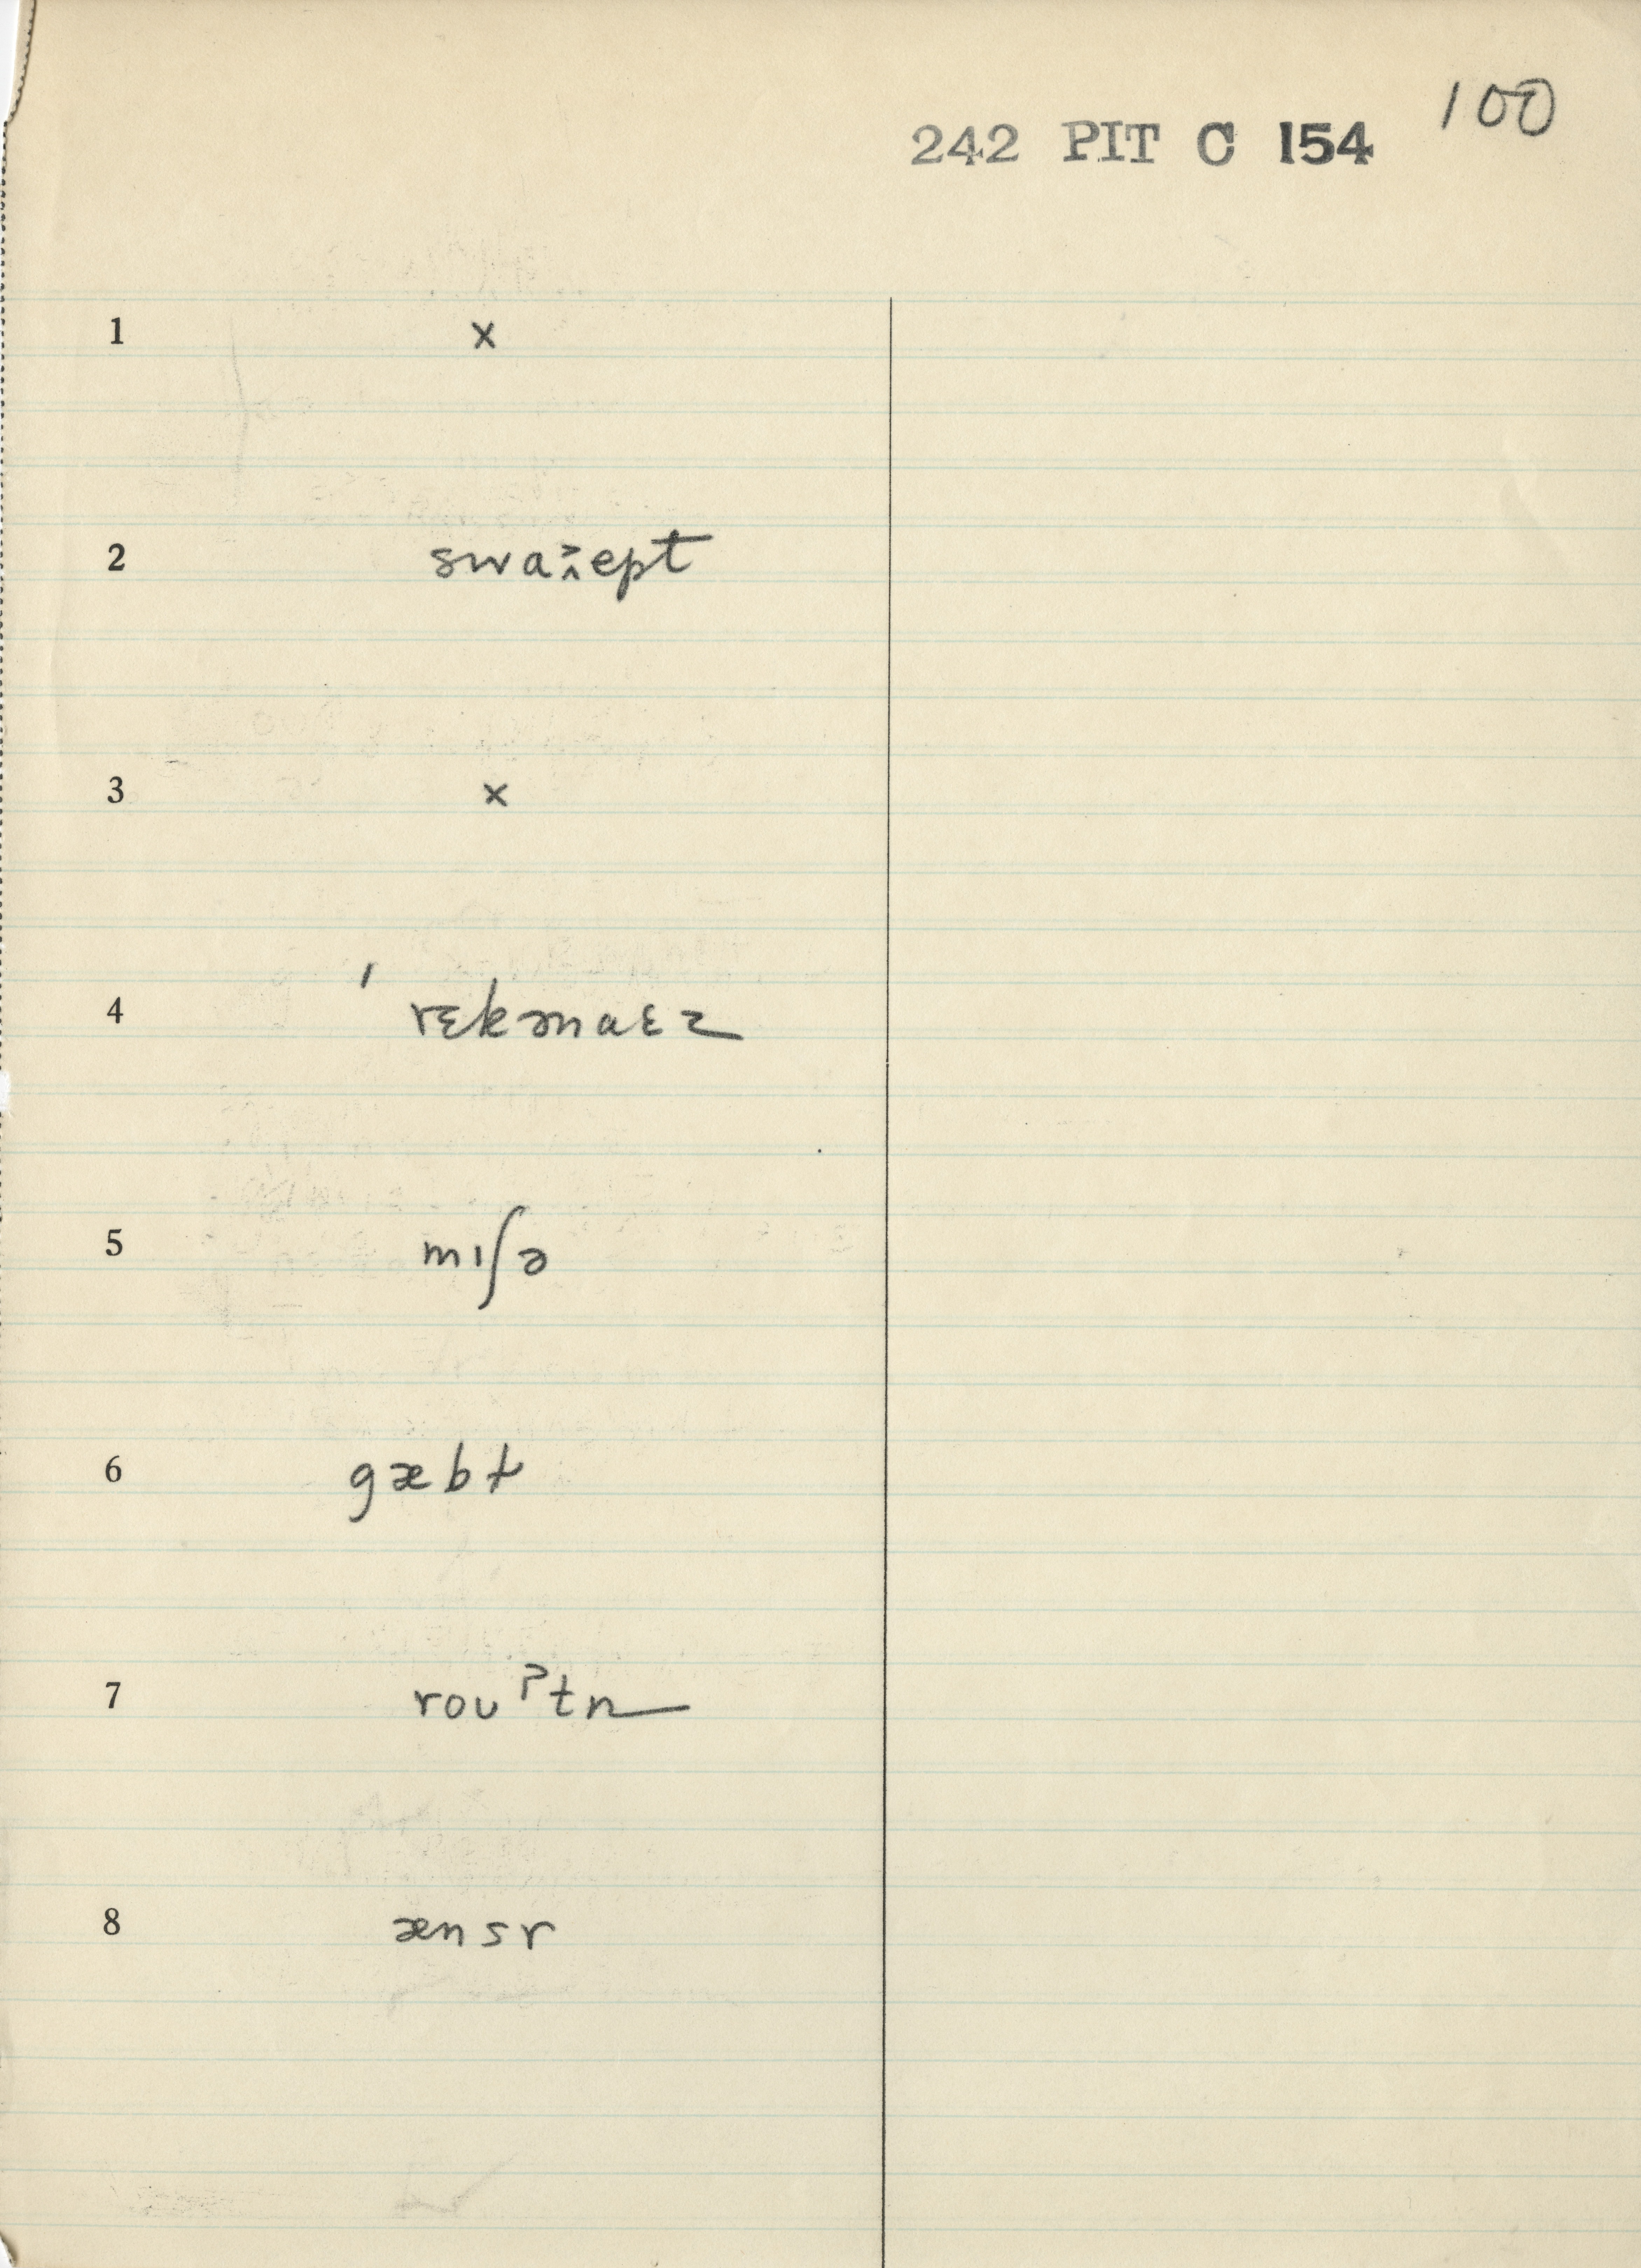 100
242 PIT C 154
1 x
2 swaːept
3 x
4 ˈ rɛkənaɛz
5 mɪʃə
6 gæbɫ
7 roʊˀtn
8 ænsr